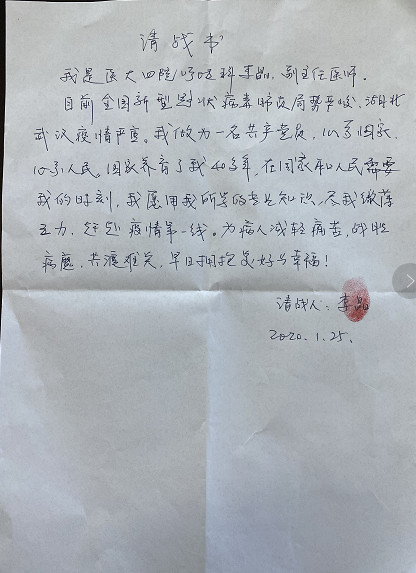 请战书
我是医大四院呼吸科李晶，副主任医师。
目前全国新型冠状病毒肺炎局势严峻，湖北
武汉疫情严重。我做为一名共产党员，心系国家，
心系人民。国家养育了我40多年，在国家和人民需要
我的时刻，我愿用我所学的专业知识，尽我微薄
之力，赶赴疫情第一线。为病人减轻病苦，战胜
病魔，共渡难关，早日拥抱美好与幸福！
请战人：李晶
2020.1.25.